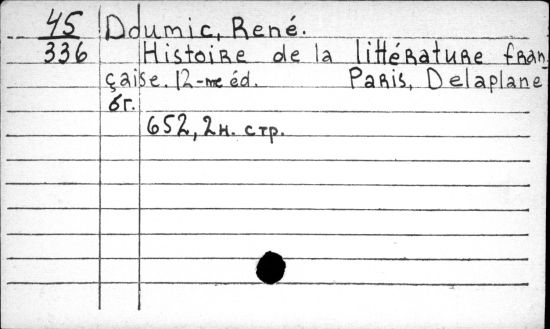 45 Doumic, René.
336 Histoire de la littérature fran-
çaise. 12-me éd. Paris, Delaplane
бг.
652, 2 н. стр.